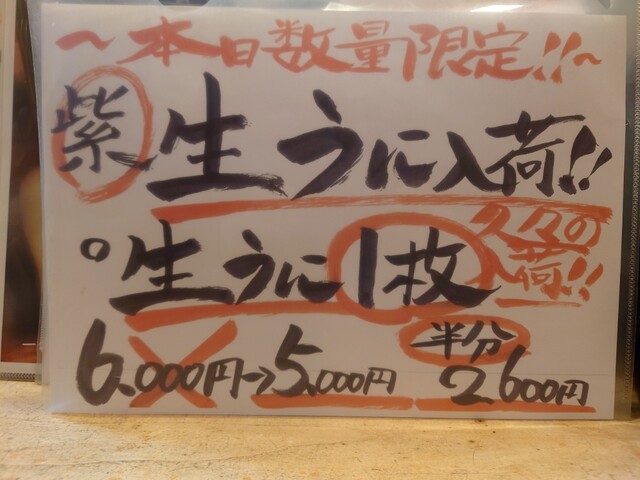 ～本日数量限定!!～
紫 生うに入荷!!
久々の入荷!!
○生うに1枚
半分
6,000円→5,000円 2600円